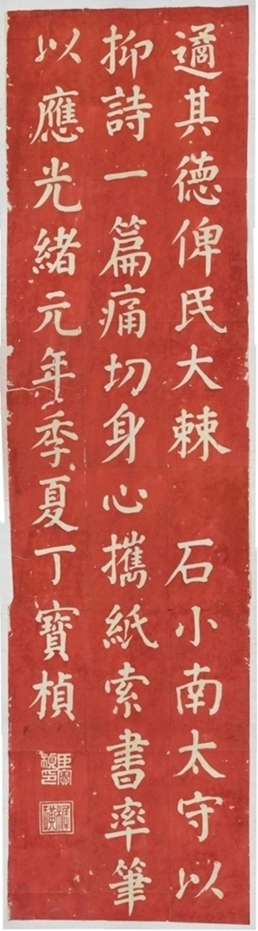 適其德俾民大棘　石小南太守以
抑詩一篇痛切身心攜紙索書率筆
以應光緒元年季夏丁寶楨